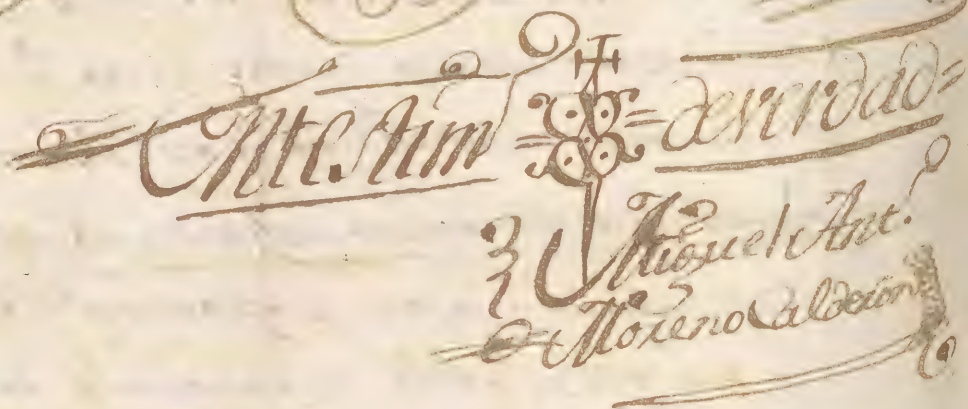 En testim.º de verdad =
Miguel Ant.º
Moreno Calderon